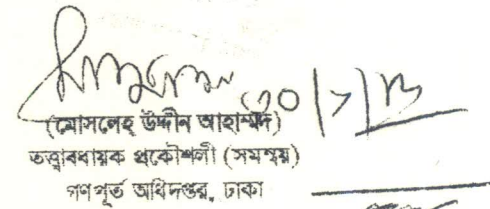 ৩০|১|১৩
(মোসলেহ উদ্দীন আহাম্মদ)
তত্ত্বাবধায়ক প্রকৌশলী (সমন্বয়)
গণপূর্ত অধিদপ্তর, ঢাকা